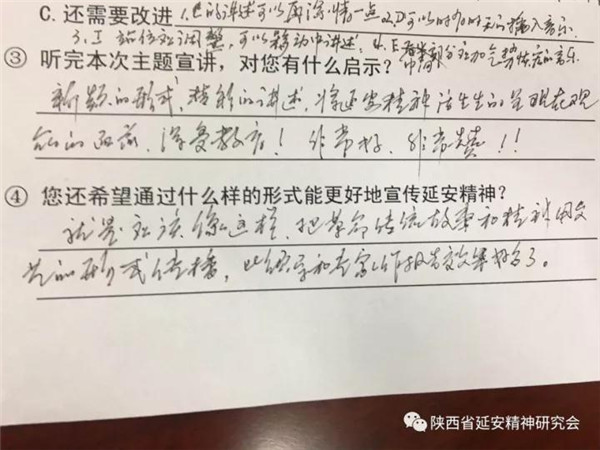 C.还需要改进 1.C的讲述可以再深情一点 2.D可以时加插入音乐.
3.I 站位应调整,可以移动中讲述; 4.E 部分应加气势恢宏的音乐
③ 听完本次主题宣讲,对您有什么启示?
新颖的形式,精彩的讲述,将延安精神活生生的呈现在观
众的面前,深受教育!非常好,非常赞!!
④ 您还希望通过什么样的形式能更好地宣传延安精神?
就是应该像这样,把革命传统故事和精神用文
艺的形式传播,比领导和专家作报告效果好多了。
陕西省延安精神研究会